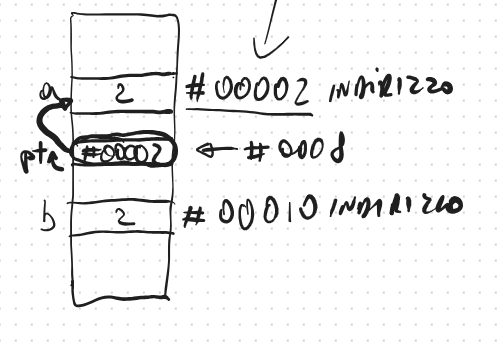 a 2 #00002 INDIRIZZO
ptr #00002 ← #0008
b 2 #00010 INDIRIZZO